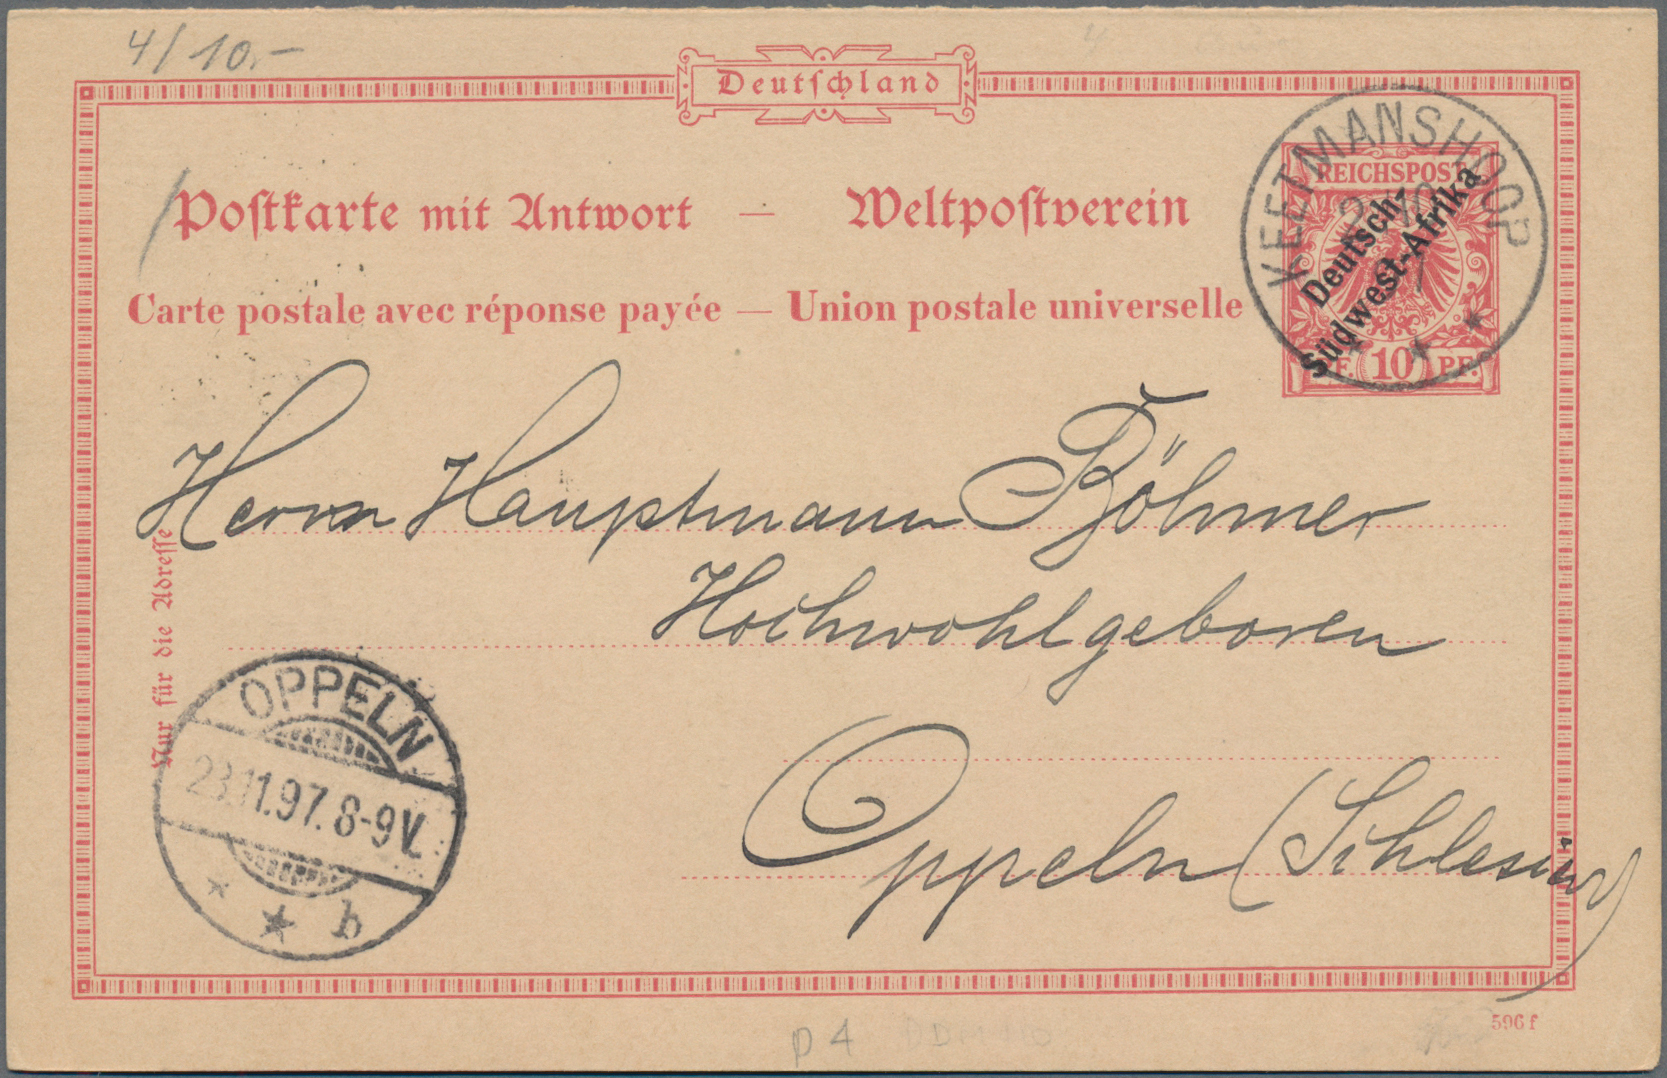 4/10.-
Deutschland
REICHSPOST
KEETMANSHOOP
Postkarte mit Antwort — Weltpostverein
Deutsch-
Südwest-Afrika
Carte postale avec réponse payée — Union postale universelle
PF. 10 PF.
Herrn Hauptmann Böhmer
Hochwohlgeboren
Nur für die Adresse
OPPELN
23.11.97. 8-9V.
b
Oppeln (Schlesien)
596 f
p 4